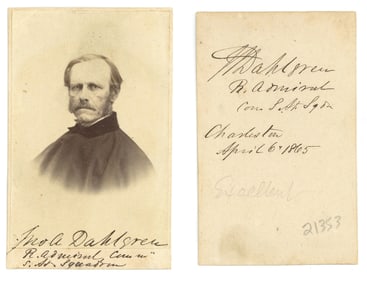 Jno A Dahlgren
R. Admiral Comm
S. At. Squadron
Dahlgren
R. Admiral
Com S. At Sqdn
Charleston
April 6 1865
Excellent
21353